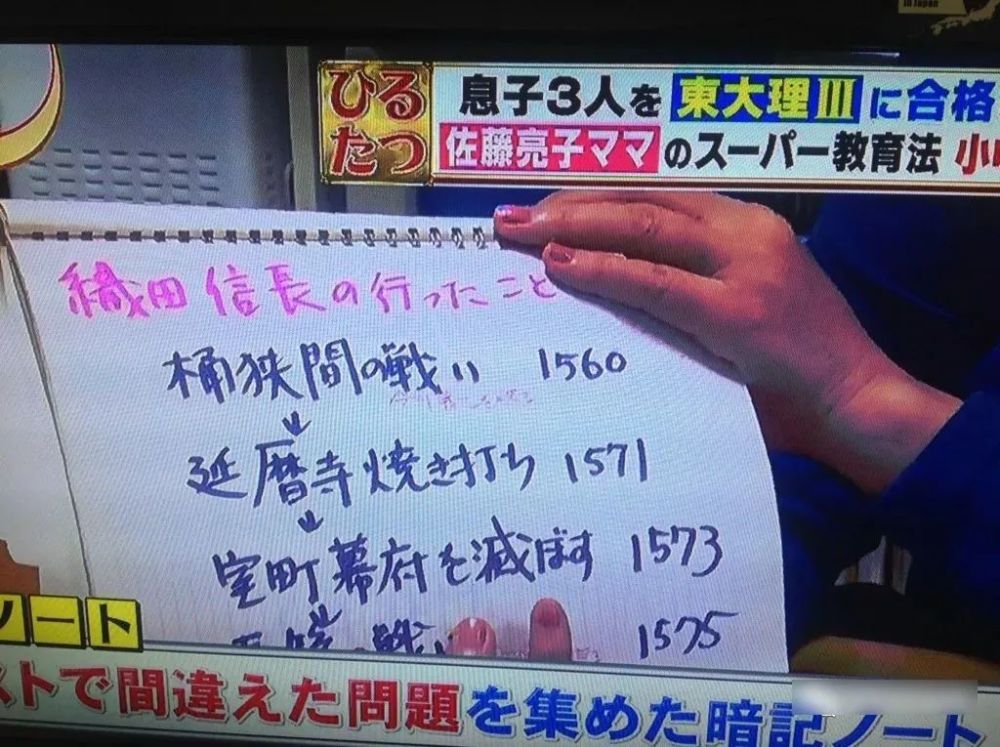 in Japan
ひるたつ
息子3人を東大理Ⅲに合格
佐藤亮子ママのスーパー教育法 小
織田信長の行ったこと
桶狭間の戦い 1560
↓
延暦寺焼き打ち 1571
↓
室町幕府を滅ぼす 1573
↓
の戦い 1575
ノート
ストで間違えた問題を集めた暗記ノート